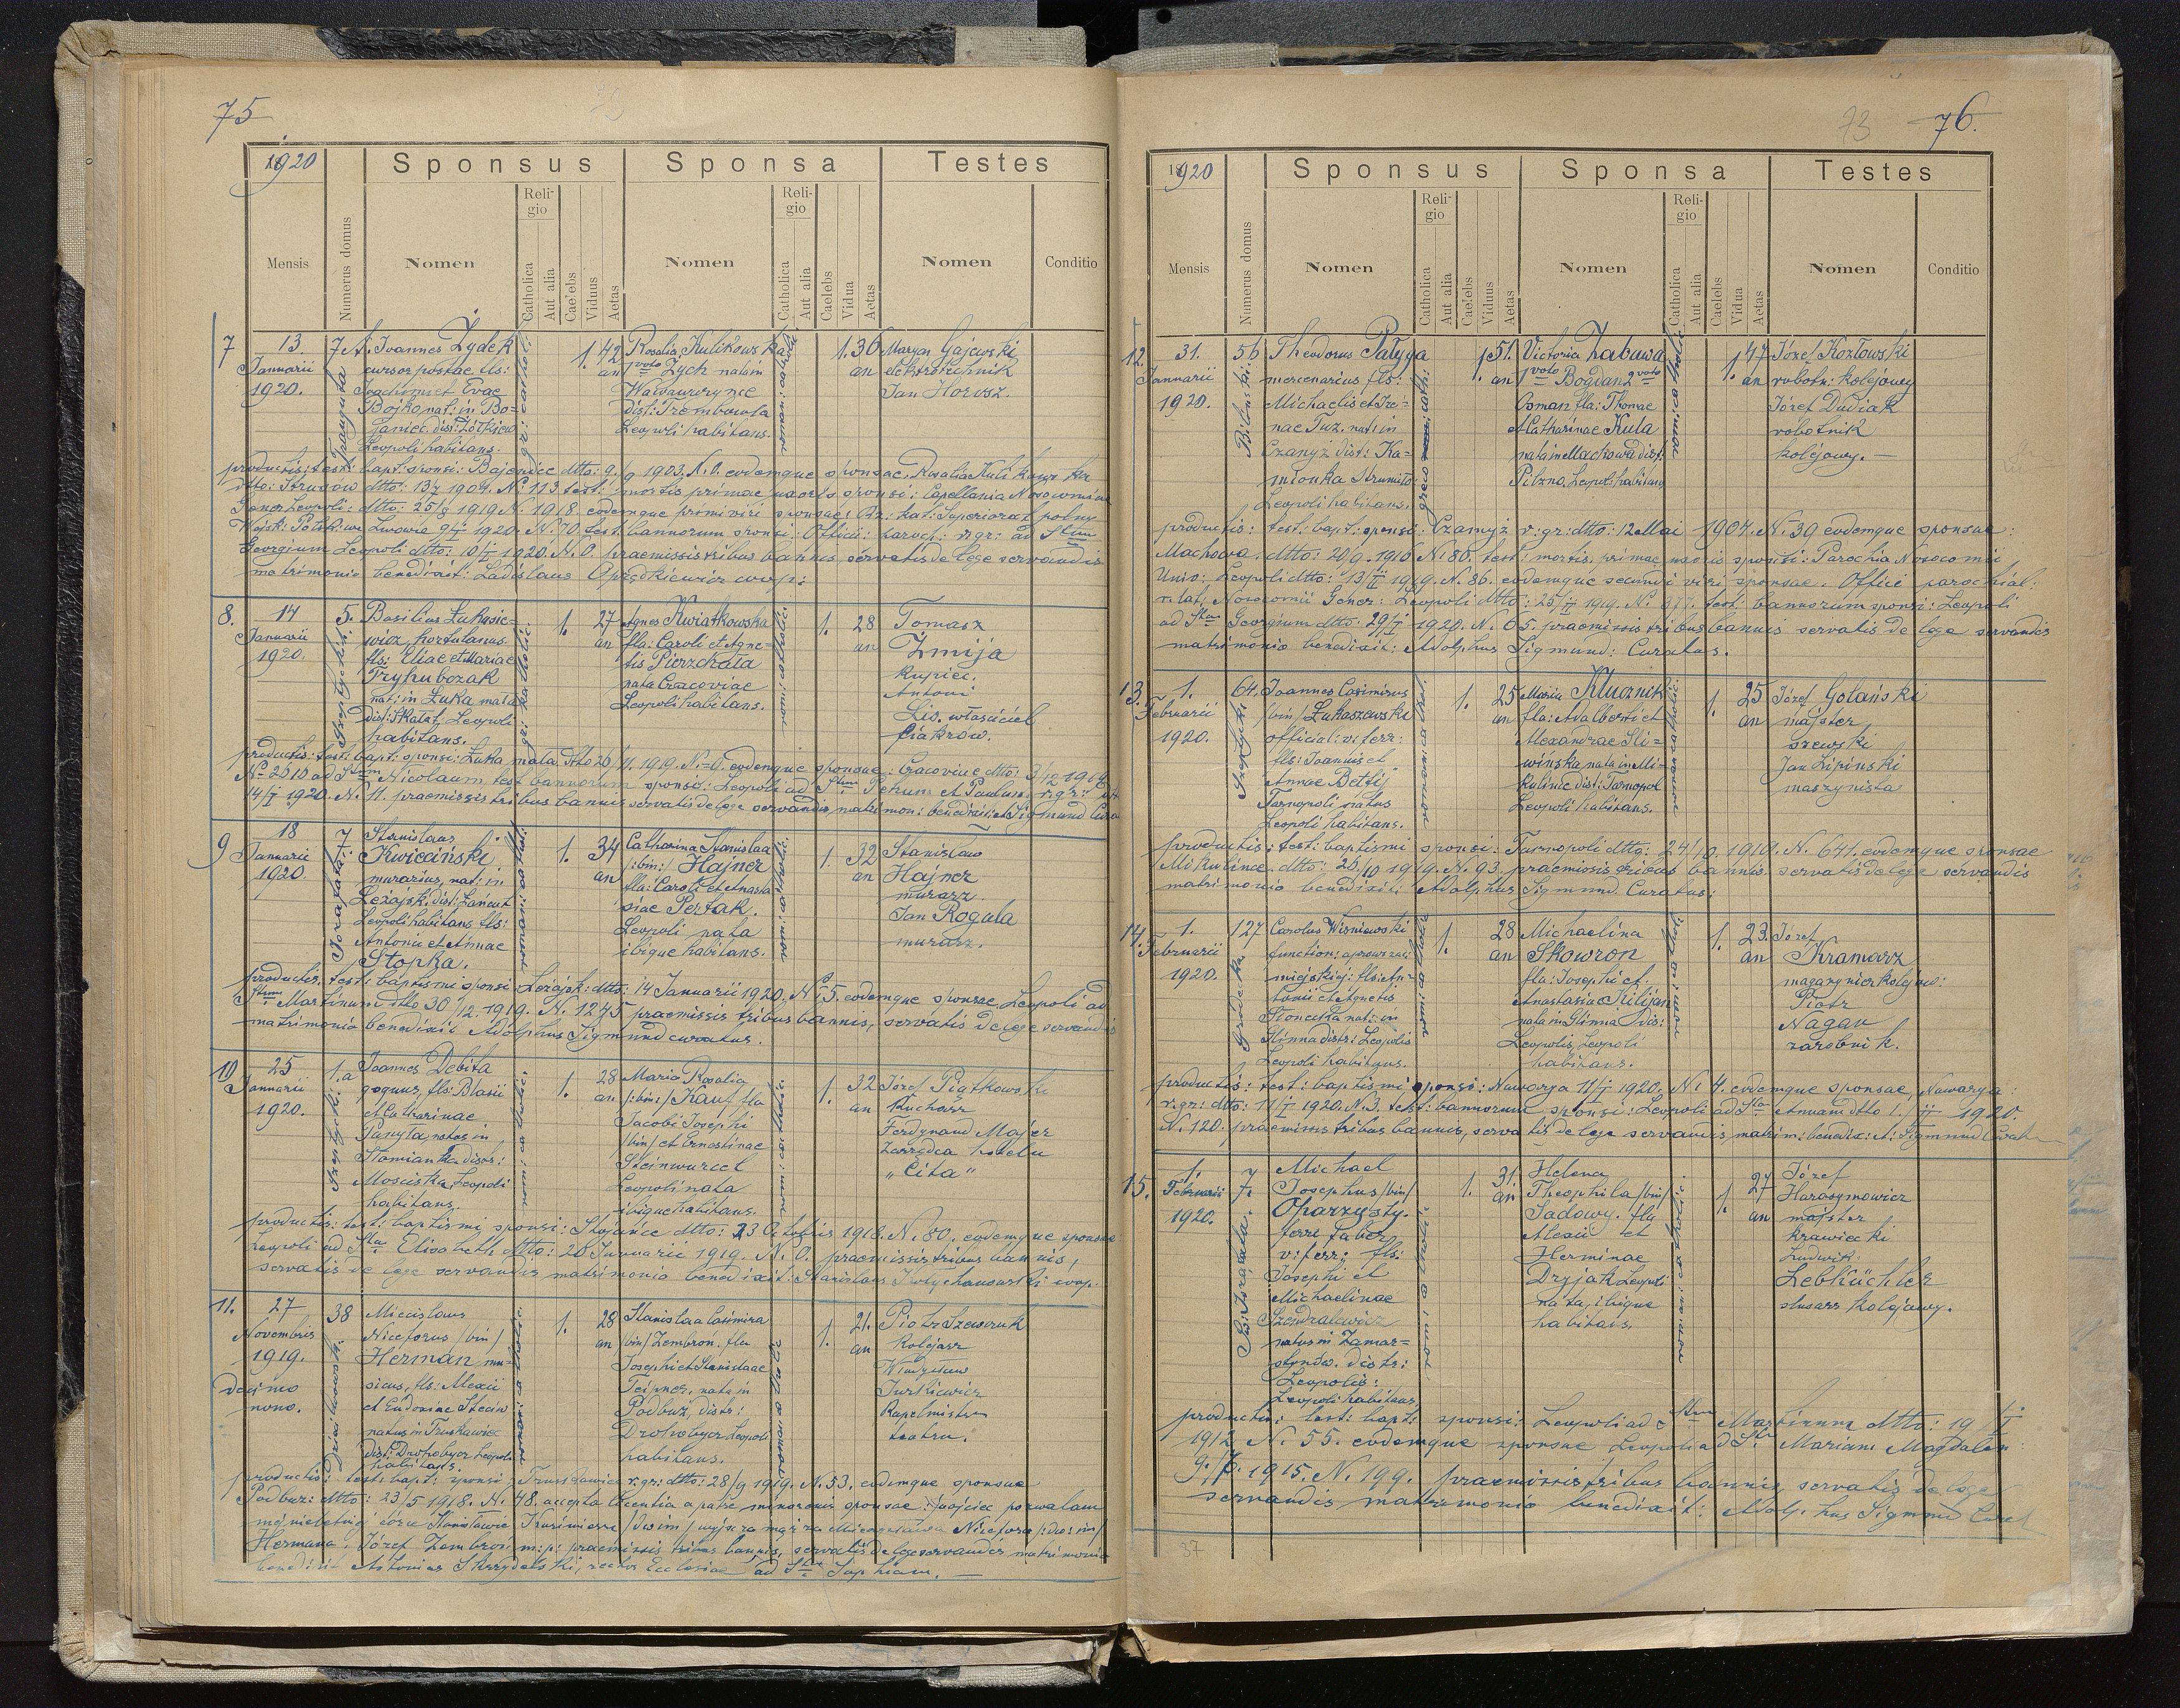 75
1920
Sponsus
Sponsa
Testes
Mensis
Numerus domus
Nomen
Religio
Catholica
Aut alia
Caelebs
Viduus
Aetas
Nomen
Religio
Catholica
Aut alia
Caelebs
Vidua
Aetas
Nomen
Conditio
7
13.
Januarii
1920.
Joannes Zydek
cursor postae fls:
Joachimi et Evae
Bojko nat: in Bo=
janiec dist: Żółkiew
Leopoli habitans.
gr: cathol:
1. 42
an
Rosalia Kulikowska
1 voto Zych nata in
Wawrzynce
dist: Trembowla
Leopoli habitans.
1. 36
an
Maryan Gajewski
elektrotechnik
Jan Horosz.
productis: test: bapt: sponsi: Bajeniec dtto: 9/9 1903. N. 0. eodemque sponsae, Rosalia Kulikowska
dtto: Strusów dtto: 1904. N. 113 test: mortis primae uxoris sponsi: Capellania Nosocomii
Gener: Leopoli: dtto: 25/8 1919 N. 1918. eodemque primi viri sponsae:
we Lwowie 9/I 1920. N. 70, test: bannorum sponsi: Officii: paroch: r: gr: ad Stum
Georgium Leopoli dtto: 10/I 1920. N. 0. praemissis tribus bannis, servatis de lege servandis
matrimonio benedixit: Ladislaus
8.
14
Januarii
1920.
5.
Basilius Łukasie=
wicz, hortulanus.
fls: Eliae et Mariae
Tryhubczak
nat: in Łuka mała
dist: Skałat, Leopoli
habitans.
1. 27
an
Agnes Kwiatkowska
fla. Caroli et Agne=
tis Pierzchała
nata Cracoviae
Leopoli habitans.
1. 28
an
Tomasz
Żmija
kupiec.
Antoni
Lis. właściciel
fiakrów.
productis: test: bapt: sponsi: Łuka mała dtto 26/11. 1919. N. 0. eodemque sponsae: Cracoviae dtto: 3/12 1919
N. 2610 ad Stum Nicolaum test bannorum sponsi: Leopoli ad Stum Petrum et Paulum, r: gr:
14/I 1920. N. 11. praemissis tribus bannis servatis de lege servandis, matrimon: benedixit: Sigmund
9
18
Januarii
1920.
7
Stanislaus
Kwieciński
murarius, nat: in
Leżajsk. dist: Łańcut
Leopoli habitans fls:
Antonii et Annae
Stopka.
1. 34
an
Catharina Stanislaa
/:bin:/ Hajner
fla: Caroli et Anasta
siae Pertak.
Leopoli nata
ibique habitans.
1. 32
an
Stanisław
Hajner
murarz.
Jan Rogala
murarz.
productis: test: baptismi sponsi Leżajsk: dtto: 14 Januarii 1920. N. 5. eodemque sponsae Leopoli ad
Stum Martinum dtto 30/12. 1919. N. 1245 praemissis tribus bannis, servatis de lege servandis
matrimonio benedixit Adolphus Sigmund curatus.
10
25
Januarii
1920.
1.a
Joannes Debita
fls: Blasii
et Catharinae
natus in
distr:
Mościska, Leopoli
habitans.
1. 28
an
Maria Rosalia
/:bin:/ Kauf fla
Jacobi Josephi
/bin/ et Ernestinae
Steinwurzel
Leopoli nata
ibique habitans.
1. 32
an
Józef Piątkowski
Kucharz
Ferdynand Majer
Zarządca hotelu
„Cita“
productis: test: baptismi sponsi: Stojańce dtto: 23 Octobris 1918. N. 80, eodemque sponsae
Leopoli ad Stam Elisabeth dtto: 20 Januarii 1919. N. 0. praemissis tribus bannis,
servatis de lege servandis matrimonio benedixit: Stanislaus
11.
27
Novembris
1919.
decimo
nono.
38
Miecislaus
Niceforus /bin/
Herman mu=
sicus, fls: Alexii
et Eudoxiae Steciw
natus in Truskawiec
dist: Drohobycz Leopoli
habitans.
1. 28
an
Stanislaa Casimira
/bin/ Zembroń. fla
Josephi et Stanislaae
Teipner, nata in
Podbuż, distr:
Drohobycz Leopoli
habitans.
1. 21.
an
Piotr Szewczuk
kolejarz
Władysław
Jurkiewicz
Kapelmistrz
teatru.
productis: test: bapt: sponsi Truskawiec r: gr: dtto: 28/9 1919. N. 53. eodemque sponsae
Podbuż: dtto: 23/5 1918. N. 48. accepta licentia a patre minorenis sponsae: Ja ojciec pozwalam
mej nieletniej córce Stanisławie Kazimierze /dwim/ wyjść za mąż za Mieczysława Nicefora /:dwoim/
Hermana. Józef Zembroń m: p: praemissis tribus bannis, servatis de lege servandis matrimonio
benedixit Antonius rector Ecclesiae ad Stam Sophiam.
73
76.
1920
Sponsus
Sponsa
Testes
Mensis
Numerus domus
Nomen
Religio
Catholica
Aut alia
Caelebs
Viduus
Aetas
Nomen
Religio
Catholica
Aut alia
Caelebs
Vidua
Aetas
Nomen
Conditio
12.
31.
Januarii
1920.
56
Theodorus Pałyga
mercenarius fls:
Michaelis et Ire=
nae Tuz, nat: in
Czanyż dist: Ka=
mionka Strumiło
Leopoli habitans.
1. 51.
an
Victoria Zabawa
1 voto Bogdan 2 voto
Osman fla: Thomae
et Catharinae Kula
nata in Machowa dist:
Pilzno, Leopoli habitans
1. 47
an
Józef Kozłowski
robotn: kolejowy
Józef Dudiak
robotnik
kolejowy.
productis: test: bapt: sponsi: Czanyż r: gr: dtto: 12 Mai 1904. N. 39 eodemque sponsae:
Machowa. dtto: 20/9. 1916 N. 86. test: mortis, primae uxoris sponsi: Parochia Nosocomii
Univ: Leopoli dtto: 13/II 1919. N. 86. eodemque secundi viri sponsae. Officii parochial:
r: lat: Nosocomii Gener: Leopoli dtto: 25/II 1919. N. 377. test: bannorum sponsi: Leopoli
ad Stum Georgium dtto: 29/I 1920. N. 65. praemissis tribus bannis servatis de lege servandis
matrimonio benedixit: Adolphus Sigmund: Curatus.
13.
1.
Februarii
1920.
64.
Joannes Casimirus
/bin/ Łukaszewski
official: v: ferr:
fls: Joannis et
Annae Bettij
Tarnopoli natus
Leopoli habitans.
1. 25
an
Maria Klucznik
fla: Adalberti et
Alexandrae Śli=
wińska nata in Mi=
kulińce dist: Tarnopol
Leopoli habitans.
1. 25
an
Józef Golański
majster
szewski
Jan Lipiński
maszynista
productis: test: baptismi sponsi: Tarnopoli dtto: 24/9. 1919. N. 641. eodemque sponsae
Mikulińce. dtto: 25/10 1919. N. 93. praemissis tribus bannis. servatis de lege servandis
matrimonio benedixit: Adolphus Sigmund. Curatus:
14.
1.
Februarii
1920.
127
Carolus Wiśniewski
function: aprowizacji
miejskiej: fls: An=
tonii et Agnetis
Słonecka nat: in
Glinna distr: Leopolis
Leopoli habitans.
1. 28
an
Michaelina
Skowron
fla: Josephi et
Anastasiae Kilijan
nata in Glinna dis:
Leopolis, Leopoli
habitans.
1. 23.
an
Józef
Kramarz
magazynier kolejow:
Piotr
Nagan
zarobnik.
productis: test: baptismi sponsi: Nawarya 11/I 1920. N. 4. eodemque sponsae, Nawarya:
r: gr: dtto: 11/I 1920. N. 3. test: bannorum sponsi: Leopoli ad Stam Annam dtto 1./II 1920.
N. 120. praemissis tribus bannis, servatis de lege servandis matrim: benedix: A: Sigmund
15.
1.
Februarii
1920.
7.
Michael
Josephus /bin/
Oparzysty.
ferri faber
v: ferr: fls:
Josephi et
Michaelinae
Szendralewicz
natus in Zamar=
stynów. distr:
Leopolis:
Leopoli habitans,
1. 31.
an
Helena
Theophila /bin/
Sadowy. fla
Alexii et
Herminae
Dryjak Leopoli
nata, ibique
habitans.
1. 27
an
Józef
Harasymowicz
majster
krawiecki
Ludwik
Lebküchler
ślusarz kolejowy.
productis: test: bapt: sponsi: Leopoli ad Stum Martinum dtto: 19/I
1912 N. 55. eodemque sponsae Leopoli ad St. Mariam Magdalen:
1915. N. 199. praemissis tribus bannis servatis de lege
servandis matrimonio benedixit: Adolphus Sigmund
37